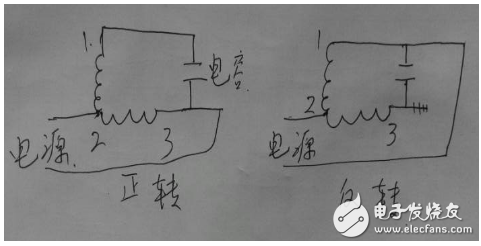 1.
电容
2
3
电源
正转
1
2
3
电源
反转
电子发烧友
www.elecfans.com